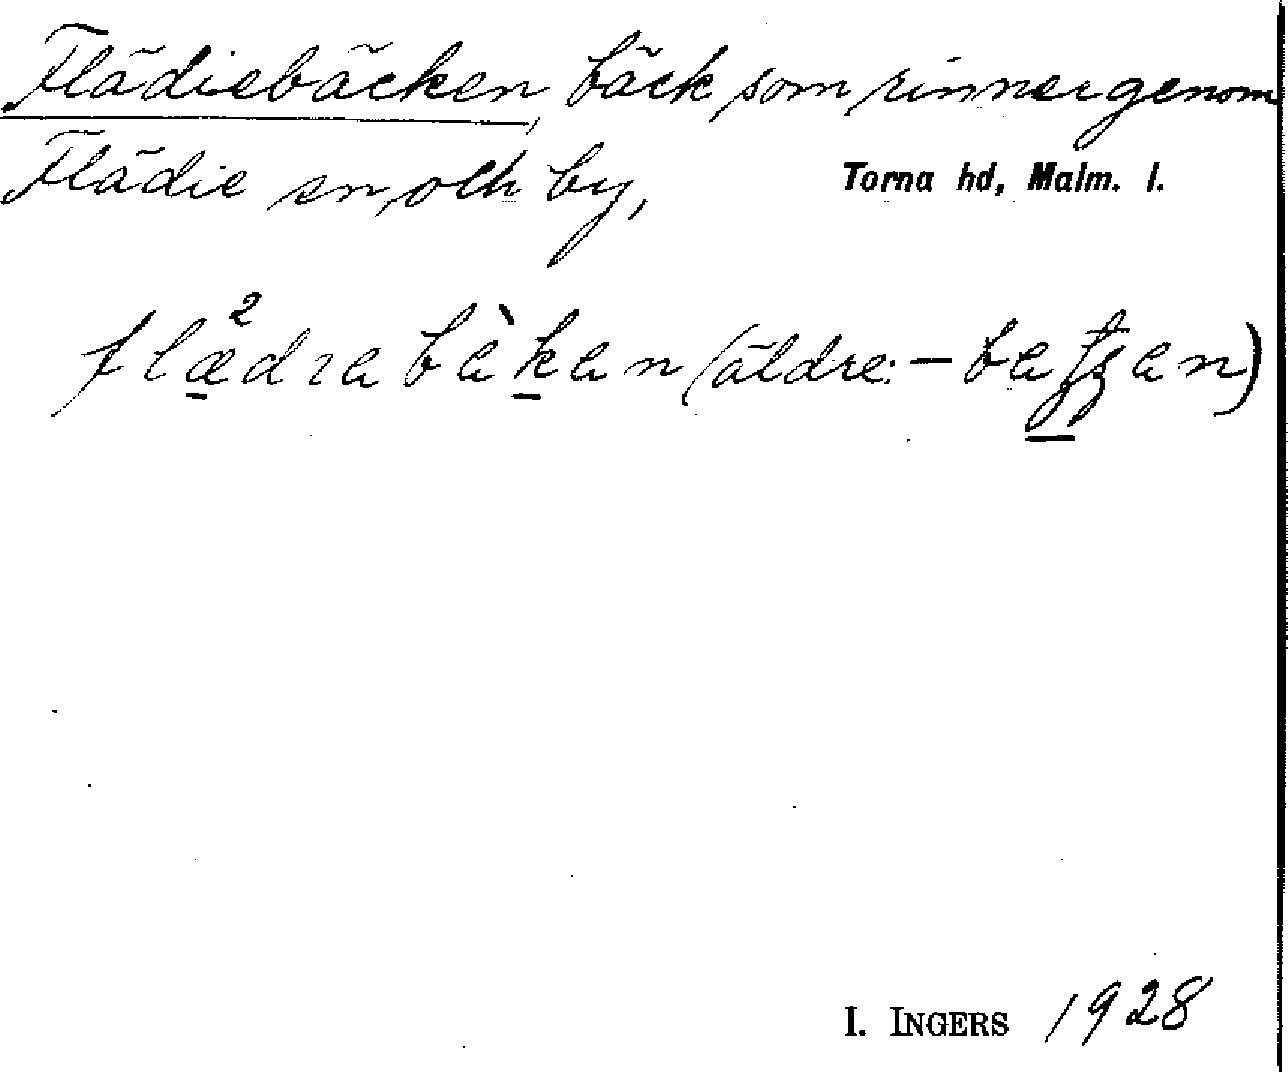 Flädiebäcken, bäck som rinner genom
Flädie sn och by, Torna hd, Malm. l.
flæ̠²dra bàk̠an (äldre: – ba
I. INGERS 1928